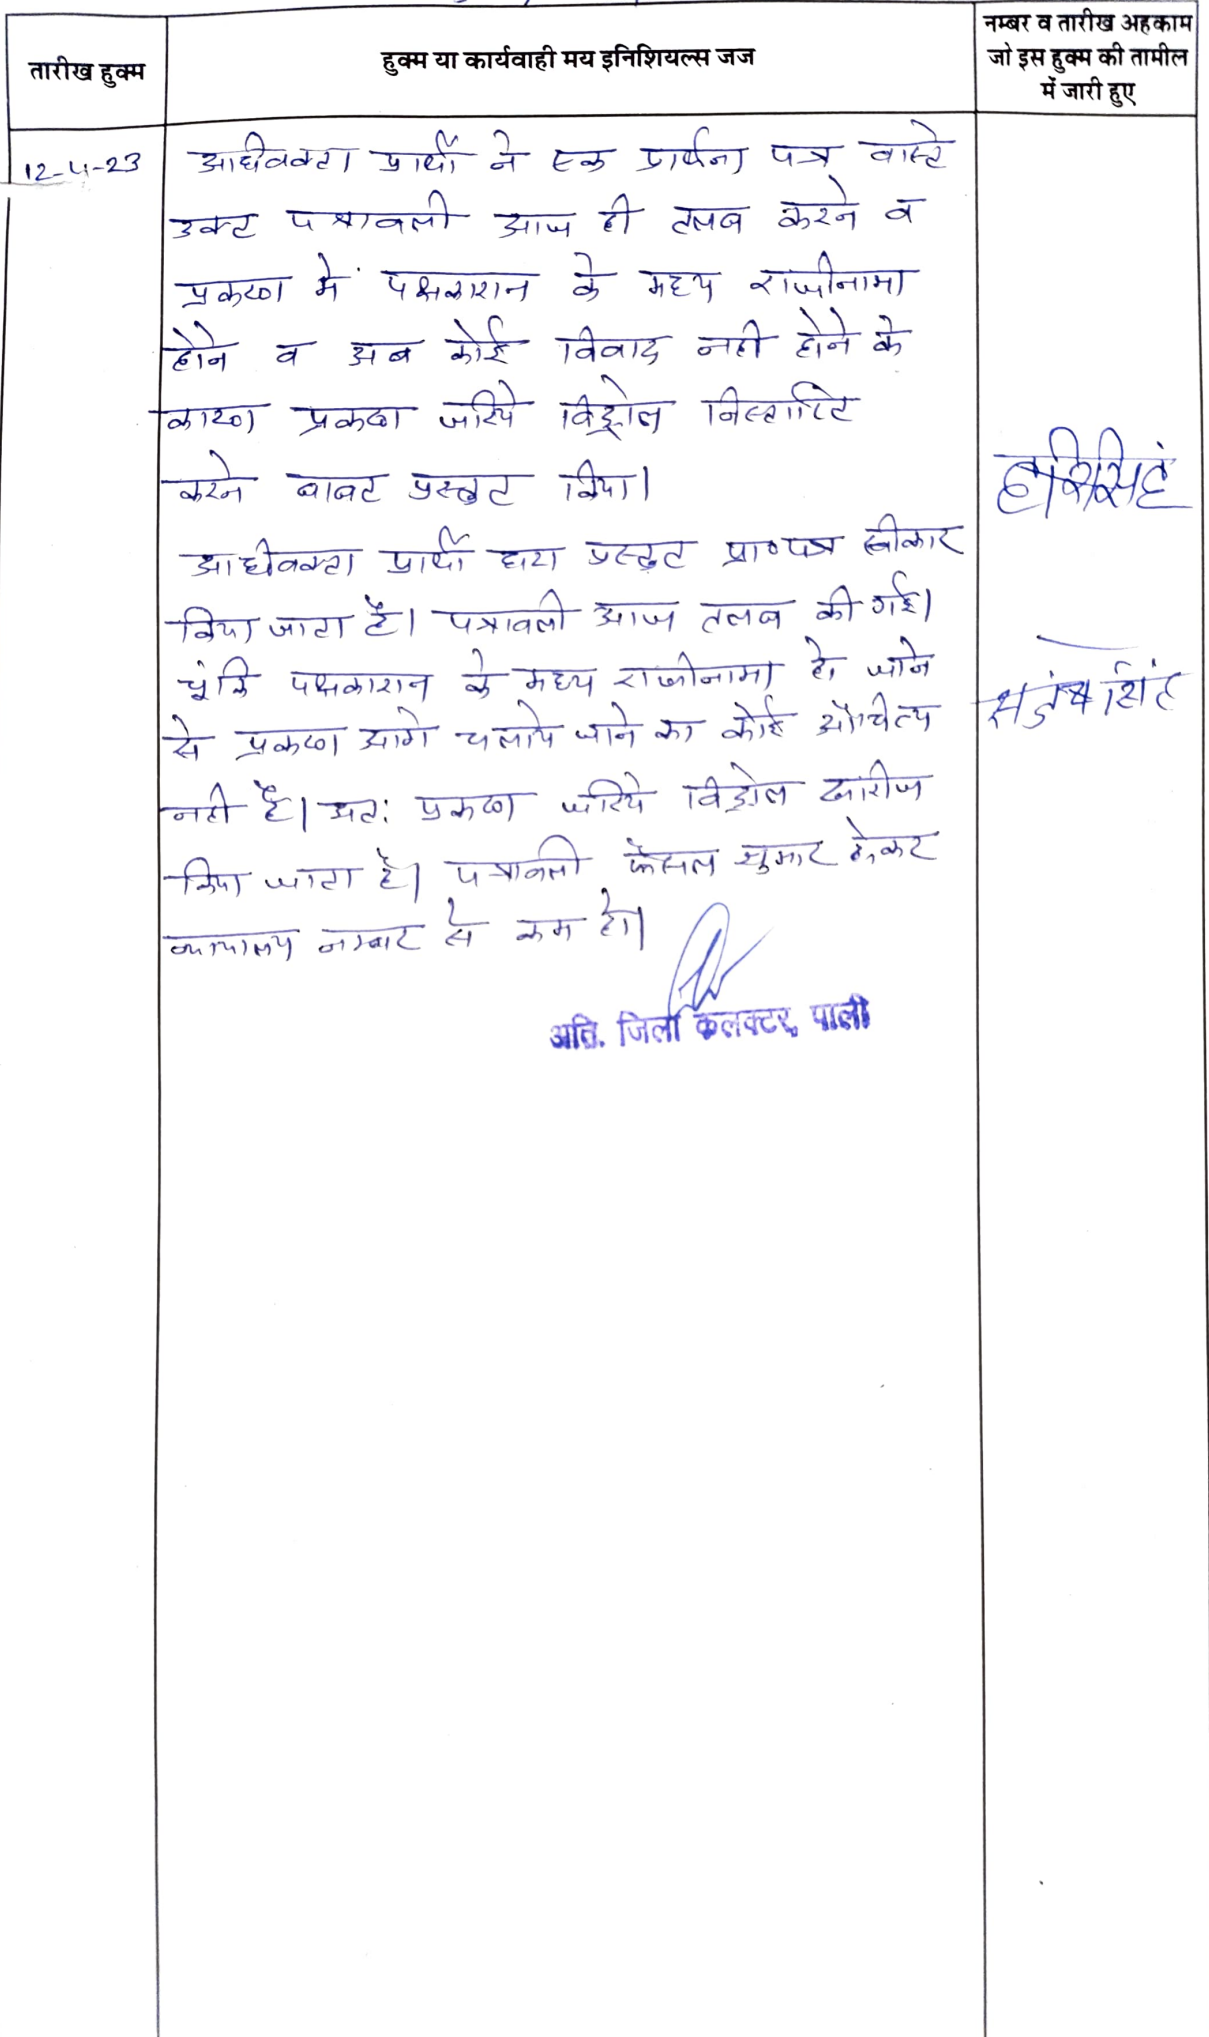 तारीख हुक्म
हुक्म या कार्यवाही मय इनिशियल्स जज
नम्बर व तारीख अहकाम
जो इस हुक्म की तामील
में जारी हुए
12-4-23
अधिवक्ता प्रार्थी ने एक प्रार्थना पत्र वास्ते
उक्त पत्रावली आज ही तलब करने व
प्रकरण में पक्षकारान के मध्य राजीनामा
होने व अब कोई विवाद नही होने के
कारण प्रकरण जरिये विड्रोल निस्तारित
करने बाबत प्रस्तुत किया।
अधिवक्ता प्रार्थी द्वारा प्रस्तुत प्रा०पत्र स्वीकार
किया जाता है। पत्रावली आज तलब की गई।
चूंकि पक्षकारान के मध्य राजीनामा हो जाने
से प्रकरण आगे चलाये जाने का कोई औचित्य
नही है। अतः प्रकरण जरिये विड्रोल खारीज
किया जाता है। पत्रावली फैसल शुमार होकर
न्यायालय नम्बर से कम हो।
अति. जिला कलक्टर, पाली
हरिसिंह